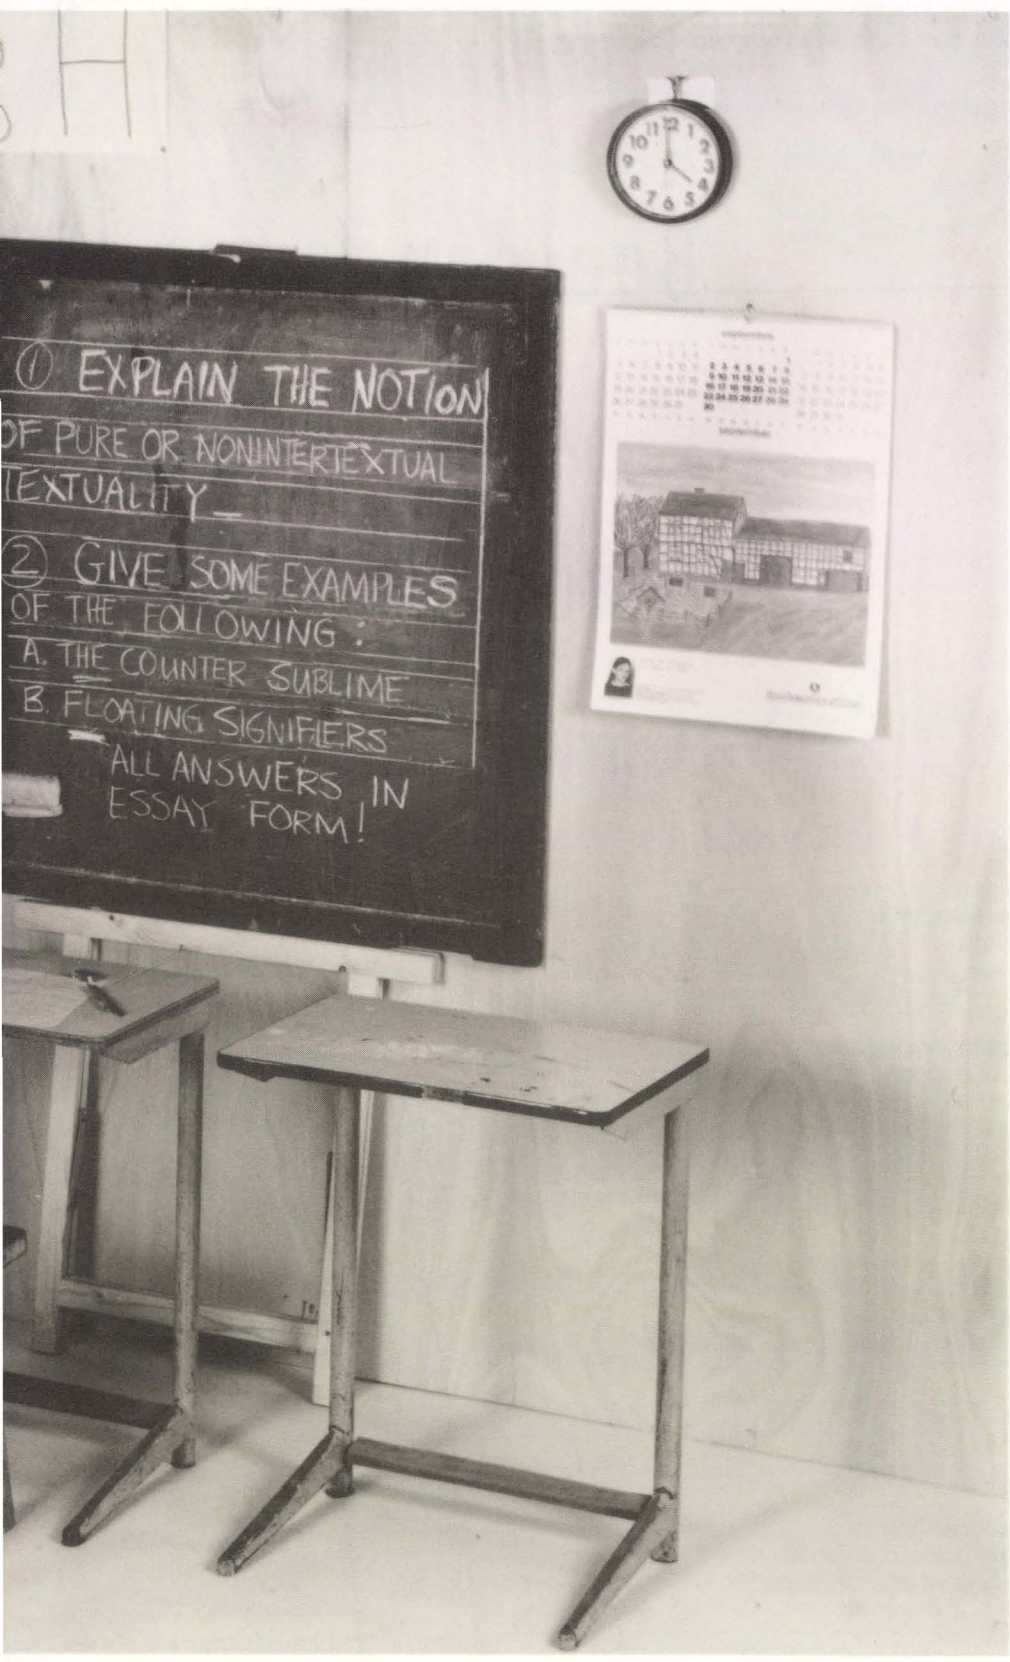 H
11 12 1
10 2
9 3
8 4
7 6 5
① EXPLAIN THE NOTION
OF PURE OR NONINTERTEXTUAL
TEXTUALITY _
② GIVE SOME EXAMPLES
OF THE FOLLOWING :
A. THE COUNTER SUBLIME
B. FLOATING SIGNIFIERS
ALL ANSWERS IN
ESSAY FORM!
september
1
2 3 4 5 6 7 8
9 10 11 12 13 14 15
16 17 18 19 20 21 22
23 24 25 26 27 28 29
30
september